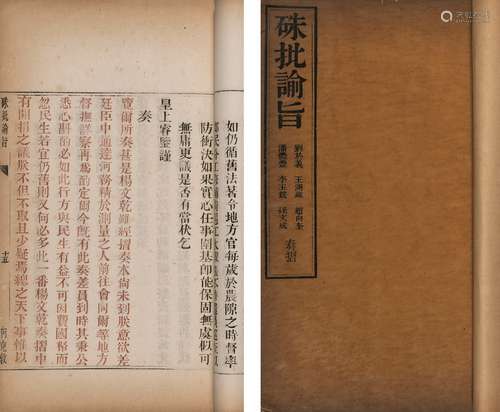 如仍循舊法著令地方官每歲於農隙之時督率
防衛決如果實心任事圍基卽能保固無虞似可
無庸更議是否有當伏乞
皇上睿鑒謹
奏
覽爾所奏甚是楊文乾雖經摺奏水尙未到朕意欲差
廷臣中通達河務精於測量之人前往會同爾等地方
督撫詳察再爲酌定爾今旣有此奏差員到時其秉公
悉心斟酌必如此行方與民生有益不可因費國帑而
忽民生若宜仍舊則又何必多此一番楊文乾奏摺中
有開捐之議朕但不取且少疑焉總之天下事惟以
硃批諭旨
硃批諭旨
劉於義 王溯維 趙向奎
潘體豐 李玉鋐 程文成
奏摺